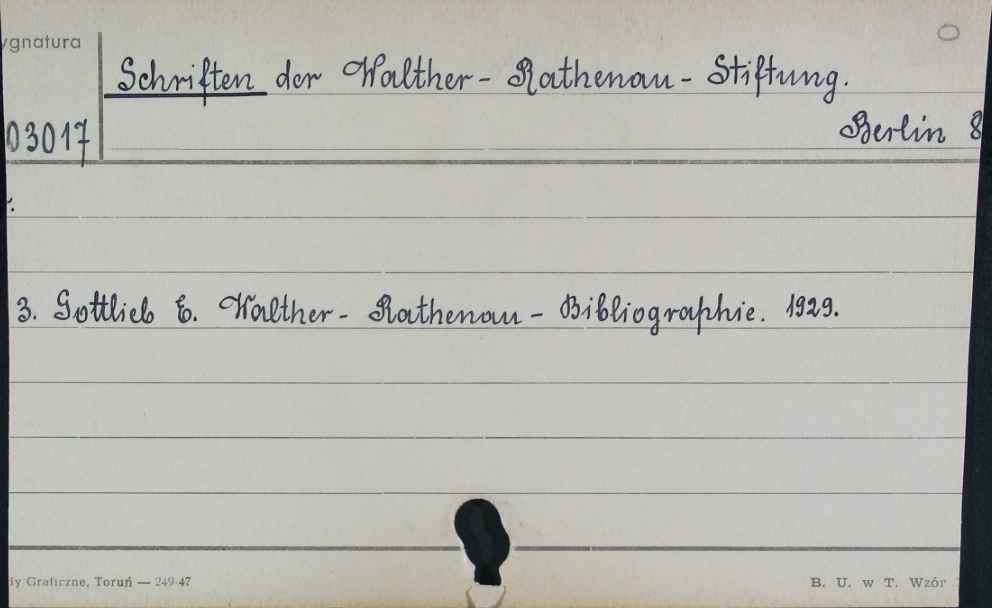 ygnatura
Schriften der Walther-Rathenau-Stiftung.
03017
Berlin 8
3. Gottlieb E. Walther-Rathenau-Bibliographie. 1929.
dy Graficzne, Toruń — 249-47
B. U. w T. Wzór